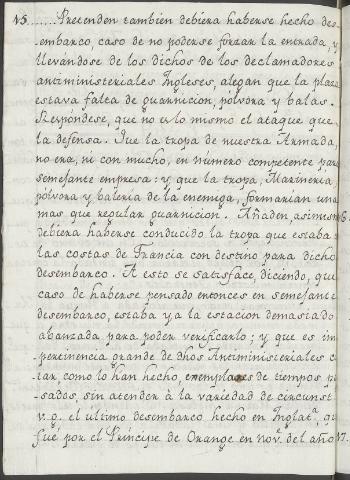 15.......Pretenden tambien debiera haberse hecho des-
-embarco, caso de no poderse forzar la entrada, y
llevándose de los dichos de los declamadores
antiministeriales Ingleses, alegan que la plaza
estava falta de guarnicion, pólvora y balas.
Respóndese, que no es lo mismo el ataque que
la defensa. Que la tropa de nuestra Armada,
no era, ni con mucho, en número competente para
semejante empresa: y que la tropa, Marineria
pólvora y balería de la enemiga, formarían una
mas que regular guarnicion. Añaden, asimesmo
debiera haberse conducido la tropa que estaba
las costas de Francia con destino para dicho
desembarco. A esto se satisface, diciendo, que
caso de haberse pensado entonces en semejante
desembarco, estaba ya la estacion demasiado
abanzada para poder verificarlo; y que es im-
pertinencia grande de dhos Antiministeriales
tar, como lo han hecho, exemplares de tiempos pa
sados, sin atender à la variedad de circunst
v.g. el último desembarco hecho en Inglatª,
fué por el Príncipe de Orange en novᵉ. del año 17